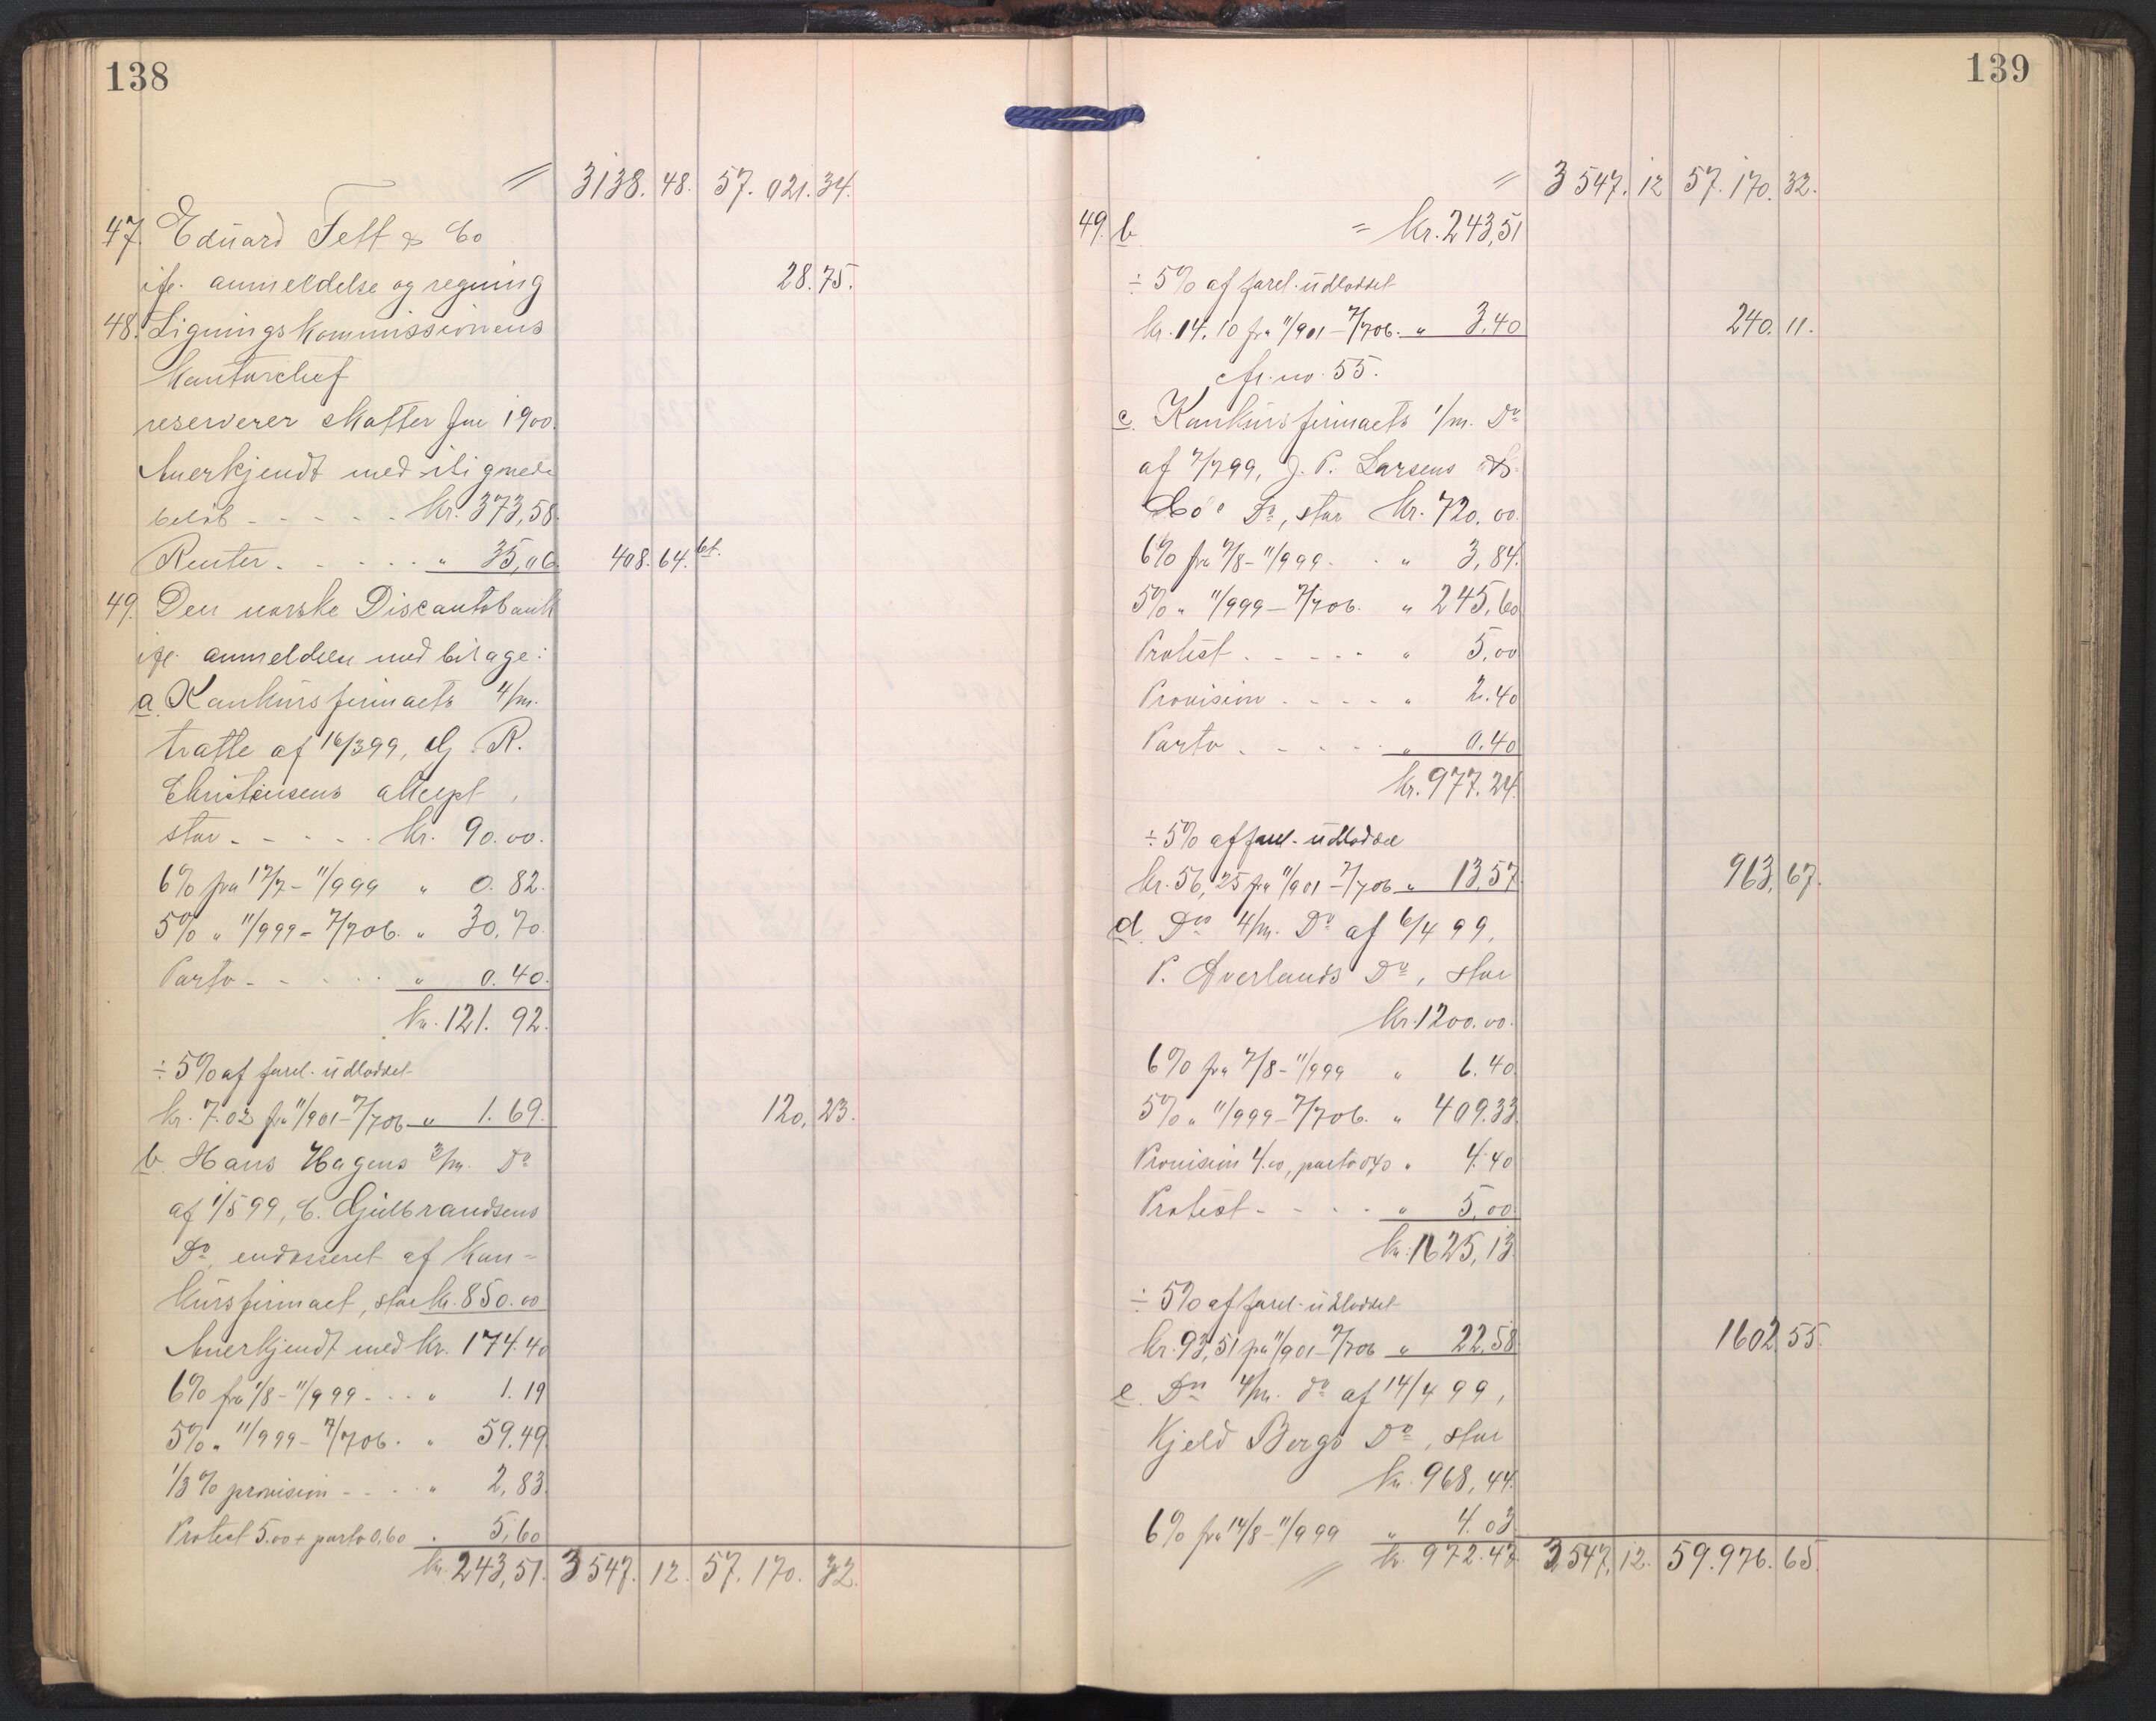 138
= 3138. 48. 57. 021. 34.
47. Eduard Fett & Co
ifl. anmeldelse og regning 28. 75.
48. Ligningskommissionens
Kontorchef
reserverer skatter for 1900.
Anerkjendt med ilignede
beløb - - - - - kr. 373,58.
Renter - - - - - " 35,06 408. 64. bt.
49. Den norske Discontobank
ifl. anmeldelse med bilage:
a. Konkursfirmaets 4/m.
tratte af 16/3 99, G. R.
Christensens accept,
stor - - - - - kr. 90.00.
6% fra 17/7 - 11/9 99 " 0. 82.
5% " 11/9 99 - 7/7 06. " 30.70.
Porto - - - - - " 0.40.
kr. 121. 92.
÷ 5% af forel. udloddet
kr. 7.02 fra 11/9 01 - 7/7 06 " 1. 69. 120, 23.
b. Hans Hagens 3/m. Do
af 1/5 99, C. Gulbrandsens
Do, endosseret af Kon-
kursfirmaet, stor kr. 850.00
Anerkjendt med kr. 174.40
6% fra 1/8 - 11/9 99 - - - " 1. 19
5% " 11/9 99 - 7/7 06. " 59.49.
1/3 % provision - - - - " 2,83.
Protest 5.00 + porto 0,60 . 5,60
kr. 243,51. 3547. 12. 57. 170. 32.
139
= 3547. 12 57. 170. 32.
49. b = kr. 243,51
÷ 5% af forel. udloddet
kr. 14. 10 fra 11/9 01 - 7/7 06. " 3,40 240. 11.
cfr. no. 55.
c. Konkursfirmaets 1/m. Do
af 7/7 99, J. P. Larsens &
Co's Do, stor kr. 720. 00.
6% fra 7/8 - 11/9 99 - . " 3, 84.
5% " 11/9 99 - 7/7 06. " 245,60
Protest . - - - - " 5,00
Provision - - - - " 2.40
Porto . - - - - " 0.40
kr. 977. 24.
÷ 5% af forel. udloddet
kr. 56,25 fra 11/9 01 - 7/7 06 " 13,57. 963, 67.
d. Des 4/m. Do af 6/4 99,
P. Averlands Do, stor
kr. 1200.00.
6% fra 7/8 - 11/9 99 " 6. 40
5% " 11/9 99 - 7/7 06. " 409.33.
Provision 4.00, porto 0.40 " 4.40
Protest - - - - " 5,00
kr. 1625, 13.
÷ 5% af forel. udloddet
kr. 93,51 fra 11/9 01 - 7/7 06 " 22.58 1602 55.
e. Des 4/m. do af 14/4 99,
Kjeld Bergs Do, stor
kr. 968, 44.
6% fra 14/8 - 11/9 99 " 4. 03
= kr. 972.47. 3547, 12. 59. 976. 65.